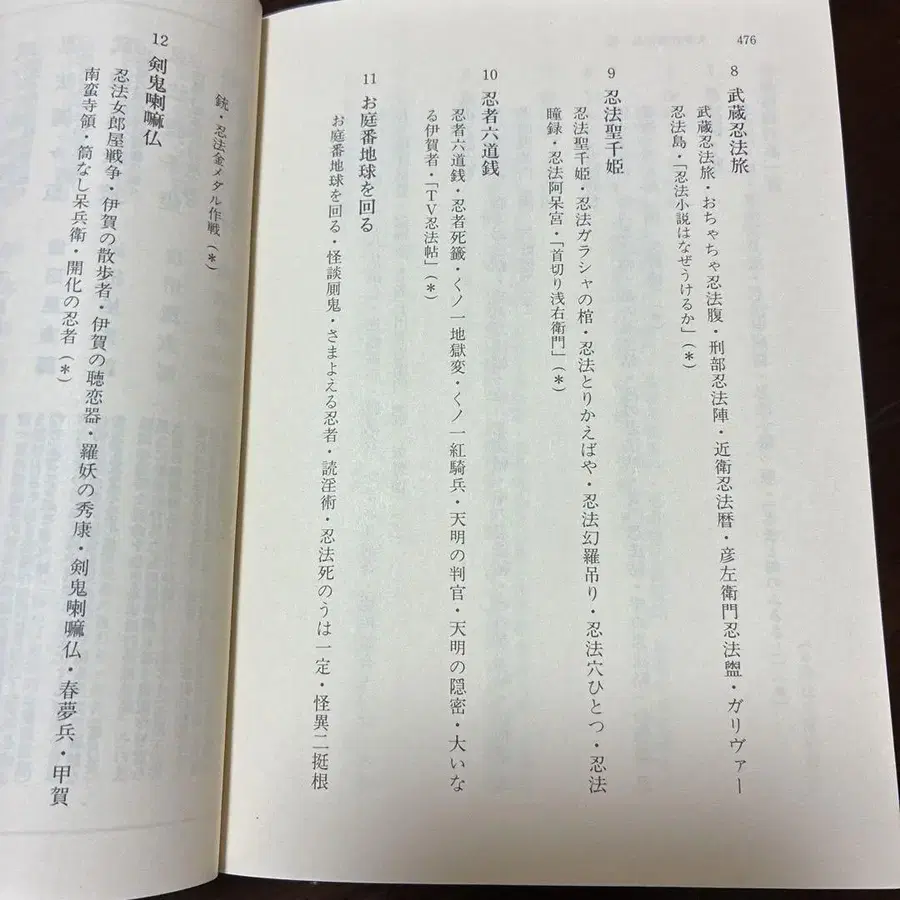 476
8 武蔵忍法旅
武蔵忍法旅・おちゃちゃ忍法腹・刑部忍法陣・近衛忍法暦・彦左衛門忍法盥・ガリヴァー
忍法島・「忍法小説はなぜうけるか」(*)
9 忍法聖千姫
忍法聖千姫・忍法ガラシャの棺・忍法とりかえばや・忍法幻羅吊り・忍法穴ひとつ・忍法
瞳録・忍法阿呆宮・「首切り浅右衛門」(*)
10 忍者六道銭
忍者六道銭・忍者死籤・くノ一地獄変・くノ一紅騎兵・天明の判官・天明の隠密・大いな
る伊賀者・「TV忍法帖」(*)
11 お庭番地球を回る
お庭番地球を回る・怪談厠鬼・さまよえる忍者・読淫術・忍法死のうは一定・怪異二挺根
銃・忍法金メダル作戦(*)
12 剣鬼喇嘛仏
忍法女郎屋戦争・伊賀の散歩者・伊賀の聴恋器・羅妖の秀康・剣鬼喇嘛仏・春夢兵・甲賀
南蛮寺領・筒なし呆兵衛・開化の忍者(*)